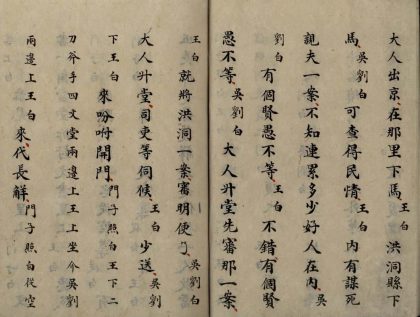 大人出京在那里下馬 王白 洪洞縣下
馬 吳劉白 可查得民情 王白 内有謀死
親夫一案不知連累多少好人在内 吳
劉白 有個賢愚不等 王白 不錯有個賢
愚不等 吳劉白 大人升堂先審那一案
王白 就將洪洞一案審明便了 吳劉白
大人升堂司吏等伺候 王白 少送 吳劉
下王白 來吩咐開門 門子照白王下二
刀斧手四文堂兩邊上王上坐介吳劉
兩邊上王白 來代長解 門子照白從空